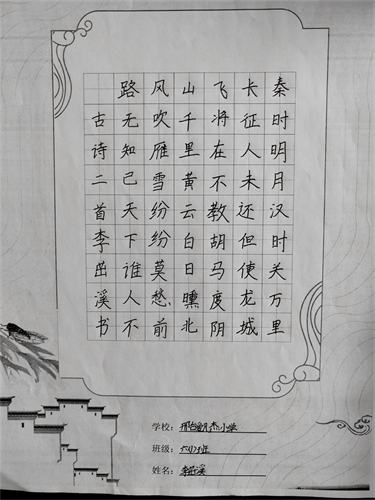 秦时明月汉时关万里
长征人未还但使龙城
飞将在不教胡马度阴
山千里黄云白日曛北
风吹雁雪纷纷莫愁前
路无知己天下谁人不
古诗二首李茁溪书
学校：小学
班级：班
姓名：李茁溪